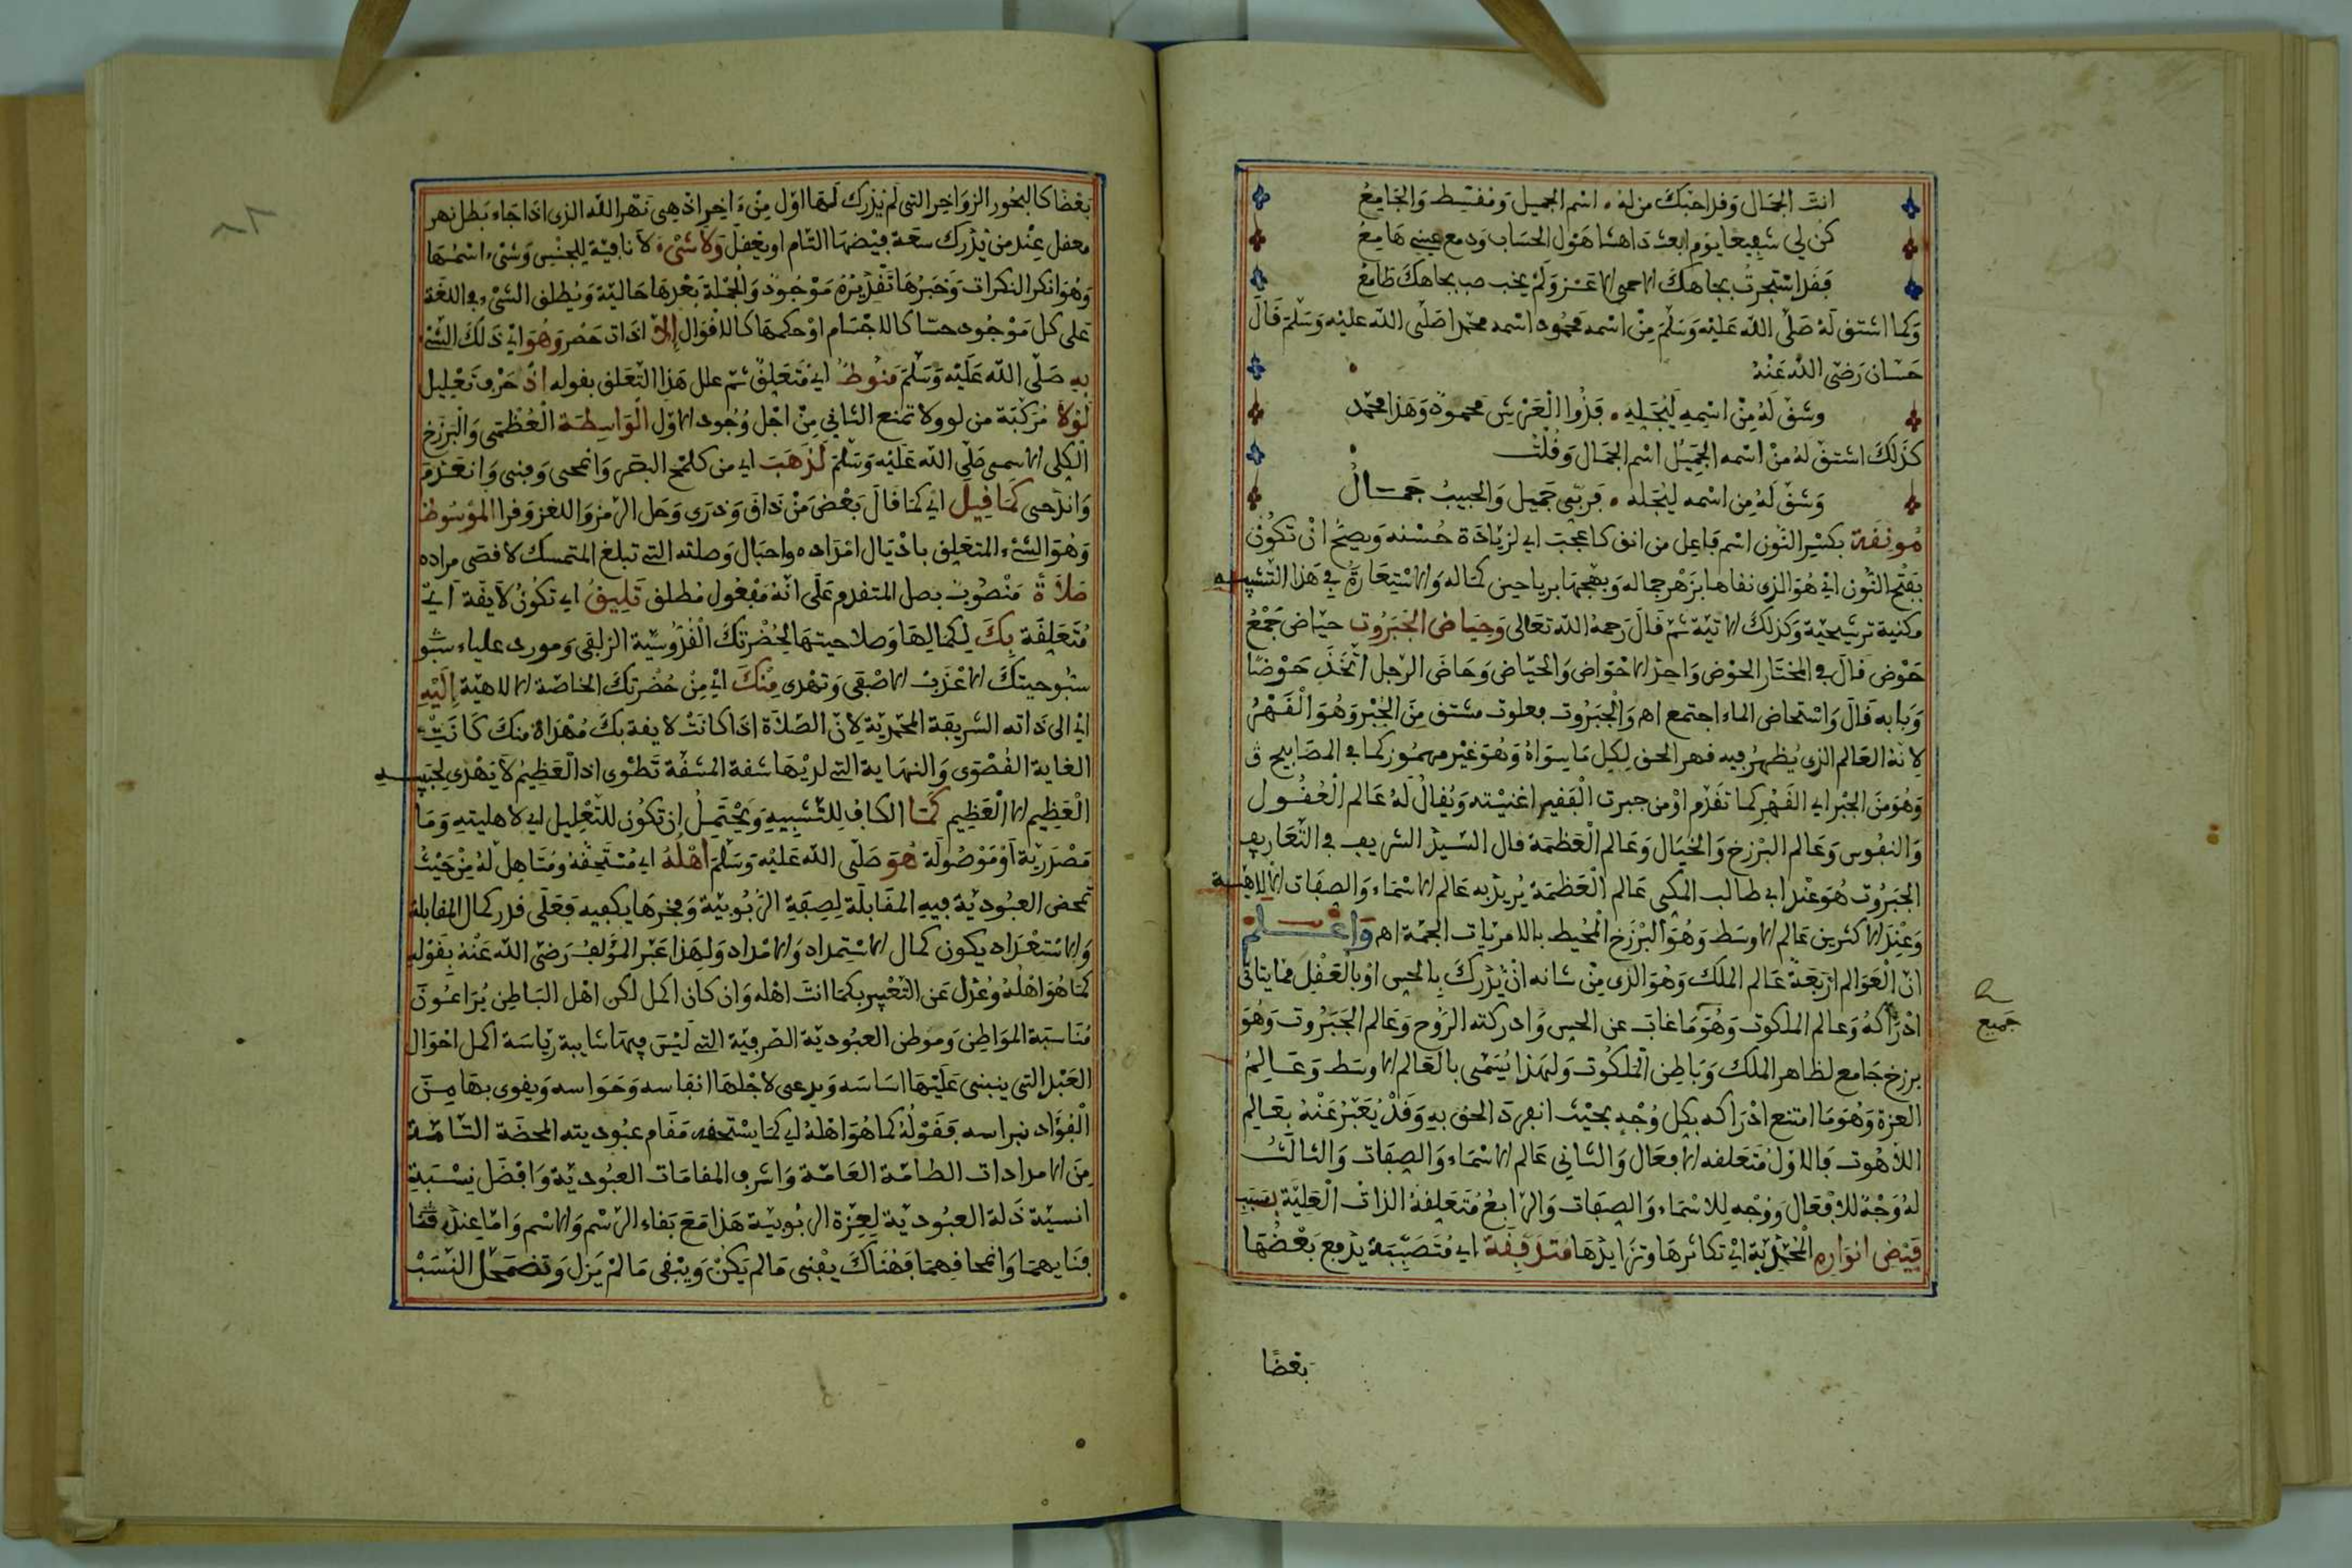 انت الجمال وفد احبك من له اسم الجميل ومقسط والجامع
كن لي شفيعا يوم ابعث داهشا هول الحساب ودمع عيني هامع
فقد استجرت بجاهك الاحمى الاعز ولم يخب صب بجاهك طامع
وكما اشتق له صلى الله عليه وسلم من اسمه محمود اسمه محمد صلى الله عليه وسلم قال
حسان رضي الله عنه
وشق له من اسمه ليجله فذوا العرش محمود وهذا محمد
كذلك اشتق له من اسمه الجميل اسم الجمال وقلت
وشق له من اسمه ليجله فربي جميل والحبيب جمال
مونقة بكسر النون اسم فاعل من انق كاعجب اي لزيادة حسنه ويصح ان تكون
بفتح النون اي هو الذي نقاها بزهر جماله وبهجها برياحين كماله والاستعارة في هذا التشبيه
مكنية ترشيحية وكذلك الاتية ثم قال رحمه الله تعالى وحياض الجبروت حياض جمع
حوض قال في المختار الحوض واحد الاحواض والحياض وحاض الرجل اتخذ حوضا
وبابه قال واستحاض الماء اجتمع اه والجبروت فعلوت مشتق من الجبر وهو القهر
لانه العالم الذي يظهر فيه قهر الحق لكل ما سواه وهو غير مهموز كما في المصابيح ق
وهو من الجبر اي القهر كما تقدم او من جبرت الفقير اغنيته ويقال له عالم العقول
والنفوس وعالم البرزخ والخيال وعالم العظمة قال السيد الشريف في التعاريف
الجبروت هو عند ابي طالب المكي عالم العظمة يريد به عالم الاسماء والصفات الالاهية
وعند الاكثرين عالم الاوسط وهو البرزخ المحيط بالامريات الجمة اه واعلم
ان العوالم اربعة عالم الملك وهو الذي من شانه ان يدرك بالحس او بالعقل فما يتاتى
ادراكه وعالم الملكوت وهو ما غاب عن الحس وادركته الروح وعالم الجبروت وهو
برزخ جامع لظاهر الملك وباطن الملكوت ولهذا يسمى بالعالم الاوسط وعالم
العزة وهو ما امتنع ادراكه بكل وجه بحيث انفرد الحق به وقد يعبر عنه بعالم
اللاهوت فالاول متعلقه الافعال والثاني عالم الاسماء والصفات والثالث
له وجه للافعال ووجه للاسماء والصفات والرابع متعلقة الذات العلية بسبب
فيض انواره المحمدية اي تكاثرها وتزايدها متدفقة اي متصببة يدفع بعضها
جميع
بعضا
بعضا كالبحور الزواخر التي لم يدرك لها اول من اخر اذ هي نهر الله الذي اذا جاء بطل نهر
معقل عند من يدرك سعة فيضها التام او يعقل ولا شيء لا نافية للجنس وشيء اسمها
وهو انكر النكرات وخبرها تقديره موجود والجملة بعدها حالية ويطلق الشيء في اللغة
على كل موجود حسا كالاجسام او حكما كالاقوال إلا اداة حصر وهو اي ذلك الشيء
به صلى الله عليه وسلم منوط اي متعلق ثم علل هذا التعلق بقوله اذ حرف تعليل
لولا مركبة من لو ولا تمنع الثاني من اجل وجود الاول الواسطة العظمى والبرزخ
الكلي الاسمى صلى الله عليه وسلم لذهب اي من كلمح البصر وانمحى وفنى وانعدم
واندحى كما قيل اي كما قال بعض من ذاق ودرى وحل الرمز واللغز وقرا الموسوط
وهو الشيء المتعلق باذيال امداده واحبال وصلته التي تبلغ المتمسك لاقصى مراده
صلاة منصوب بصل المتقدم على انه مفعول مطلق تليق اي تكون لايقة اي
متعلقة بك لكمالها وصلاحيتها لحضرتك القدوسية الزلقى ومورد علياء شبو
سبوحيتك الاعذب الاصفى وتهدى منك اي من حضرتك الخاصة الالاهية إليه
اي الى ذاته الشريفة المحمدية لان الصلاة اذا كانت لايقة بك مهداة منك كانت
الغاية القصوى والنهاية التي لديها شقة المشقة تطوى اذ العظيم لا يهدي لحبيبه
العظيم الا العظيم كما الكاف للتشبيه ويحتمل ان تكون للتعليل اي لاهليته وما
مصدرية او موصولة هو صلى الله عليه وسلم اهله اي مستحقه ومتاهل له من حيث
تمحض العبودية فيه المقابلة لصفة الربوبية وفخرها يكفيه فعلى قدر كمال المقابلة
والاستعداد يكون كمال الاستمداد والامداد ولهذا عبر المؤلف رضي الله عنه بقوله
كما هو اهله وعدل عن التعبير بكما انت اهله وان كان اكمل لكن اهل الباطن يراعون
مناسبة المواطن وموطن العبودية الصرفية التي ليس فيها شايبة رياسة اكمل احوال
العبد التي ينبني عليها اساسه ويرعى لاجلها انفاسه وحواسه ويقوى بها من
الفؤاد نبراسه فقوله كما هو اهله اي كما يستحقه مقام عبوديته المحضة التامة
من الامدادات الطامة العامة واشرف المقامات العبودية وافضل نسبة
انسية ذلة العبودية لعزة الربوبية هذا مع بقاء الرسم والاسم واما عند
فنايهما وانمحاقهما فهناك يفنى ما لم يكن ويبقى ما لم يزل وتضمحل النسب